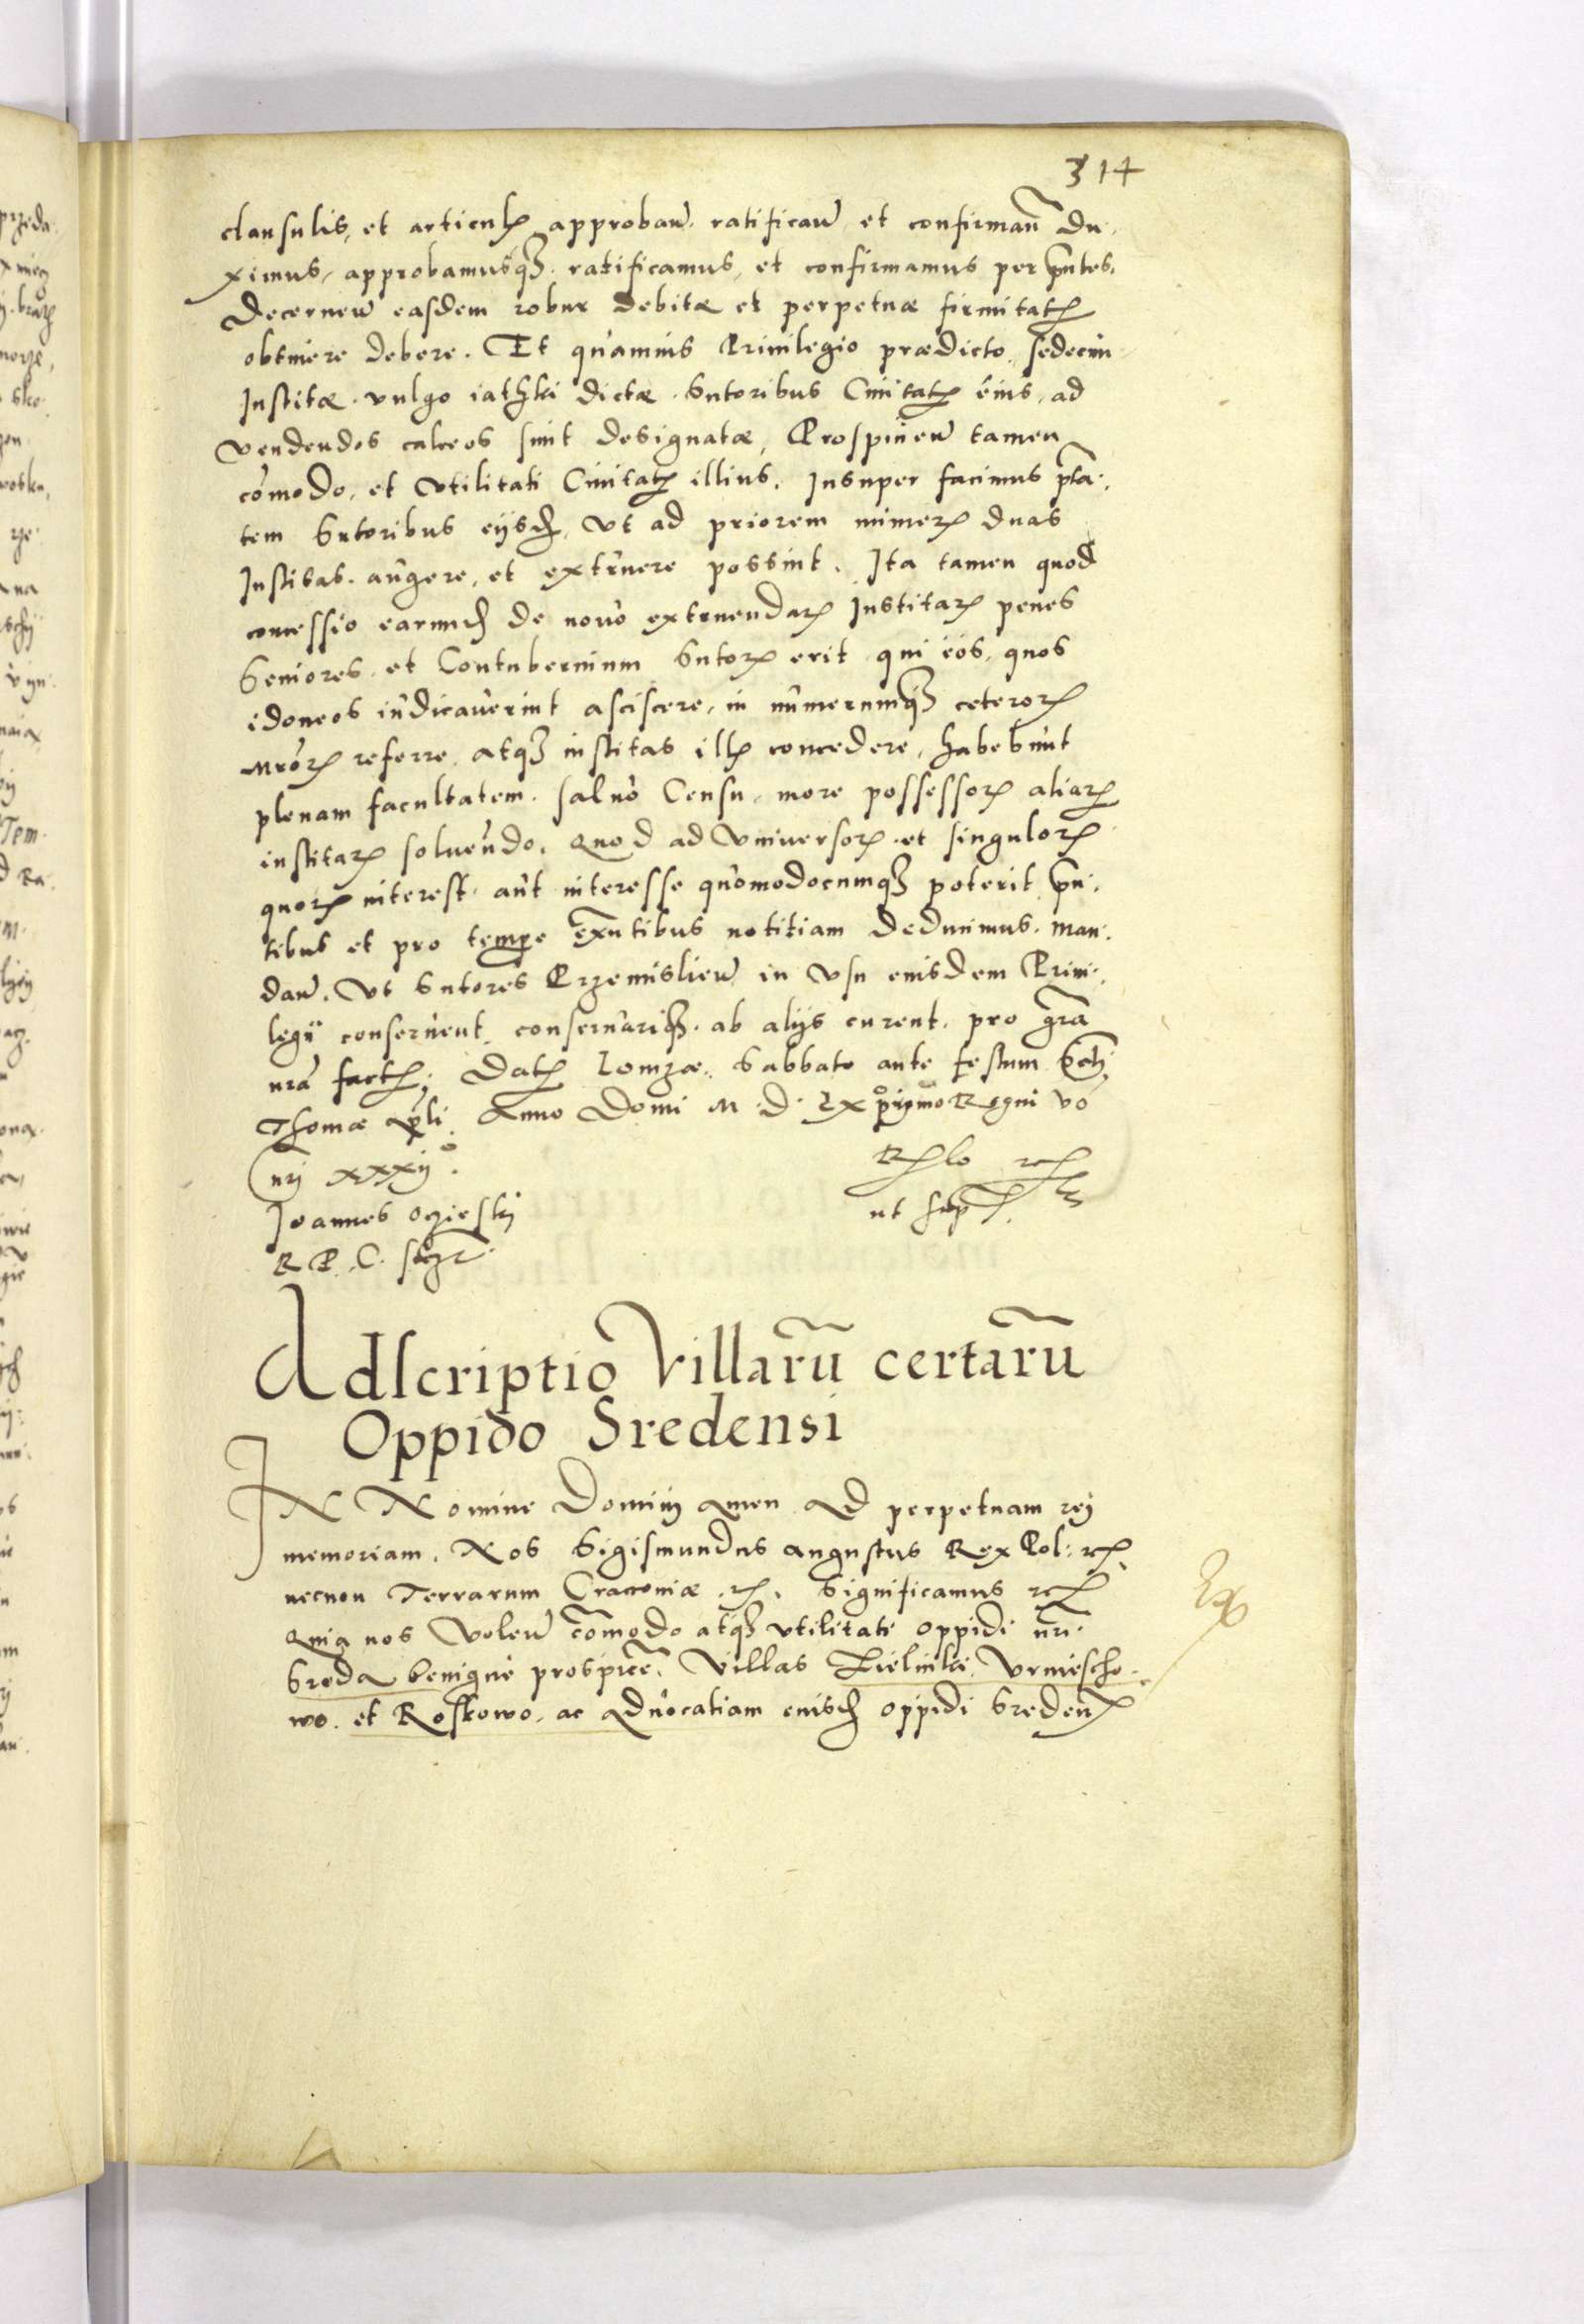 314
clausulis, et articul[is] approban̄. ratifican̄ et confirman̄ du-
ximus, approbamusq[ue] ratificamus, et confirmamus per p̄ntes.
Decernen̄ easdem robur debitæ et perpetuæ firmitat[is]
obtinere debere. Et quamuis Priuilegio prædicto sedecim
Institæ vulgo iathki dictæ Sutoribus Ciuitat[is] eius, ad
vendendos calceos sint designatæ, Prospicien̄ tamen
com̄odo, et vtilitati Ciuitat[is] illius. Insuper facimus p̄ta-
tem Sutoribus eijsd[em], vt ad priorem numer[um] duas
Institas augere, et extruere possint. Ita tamen quod
concessio earund[em] de nouo extruendar[um] Institar[um] penes
Seniores et Contubernium Sutor[um] erit qui eos, quos
idoneos iudicauerint asciscere, in numerumq[ue] ceteror[um]
mr̄or[um] referre atq[ue] institas ill[is] concedere, habebunt
plenam facultatem. saluo Censu more possessor[um] aliar[um]
institar[um] soluendo. Quod ad Vniuersor[um] et singulor[um]
quor[um] interest aut interesse quomodocumq[ue] poterit p̄n-
tibus et pro tempe ex̄ntibus notitiam deducimus. Man-
dan̄. Vt Sutores Przemislien̄ in vsu eiusdem Priui-
legii conseruent conseruariq[ue] ab alijs curent, pro gr̄a
nr̄a factur[i]. Dat[um] Lomzæ Sabbato ante festum Scti
Thomæ Ap̄li Anno Domi M D Lx primo Regni vo
nrj xxxij°
R[elati]o etc
ut sup[ra].
Joannes Oczieskj
R. P. C. sbszt.
Adscriptio Villarū certarū
Oppido Sredensi
IN Nomine Dominj Amen Ad perpetuam rej
memoriam. Nos Sigismundus Augustus Rex Pol: etc
necnon Terrarum Cracouiæ etc. Significamus etc
Quia nos Volen̄ com̄odo atq[ue] vtilitati oppidi nr̄i
Sreda benigne prospicē. Villas Zielinki Vrniescho-
wo. et Roskowo, ac Aduocatiam eiusd[em] oppidi Sreden[sis]